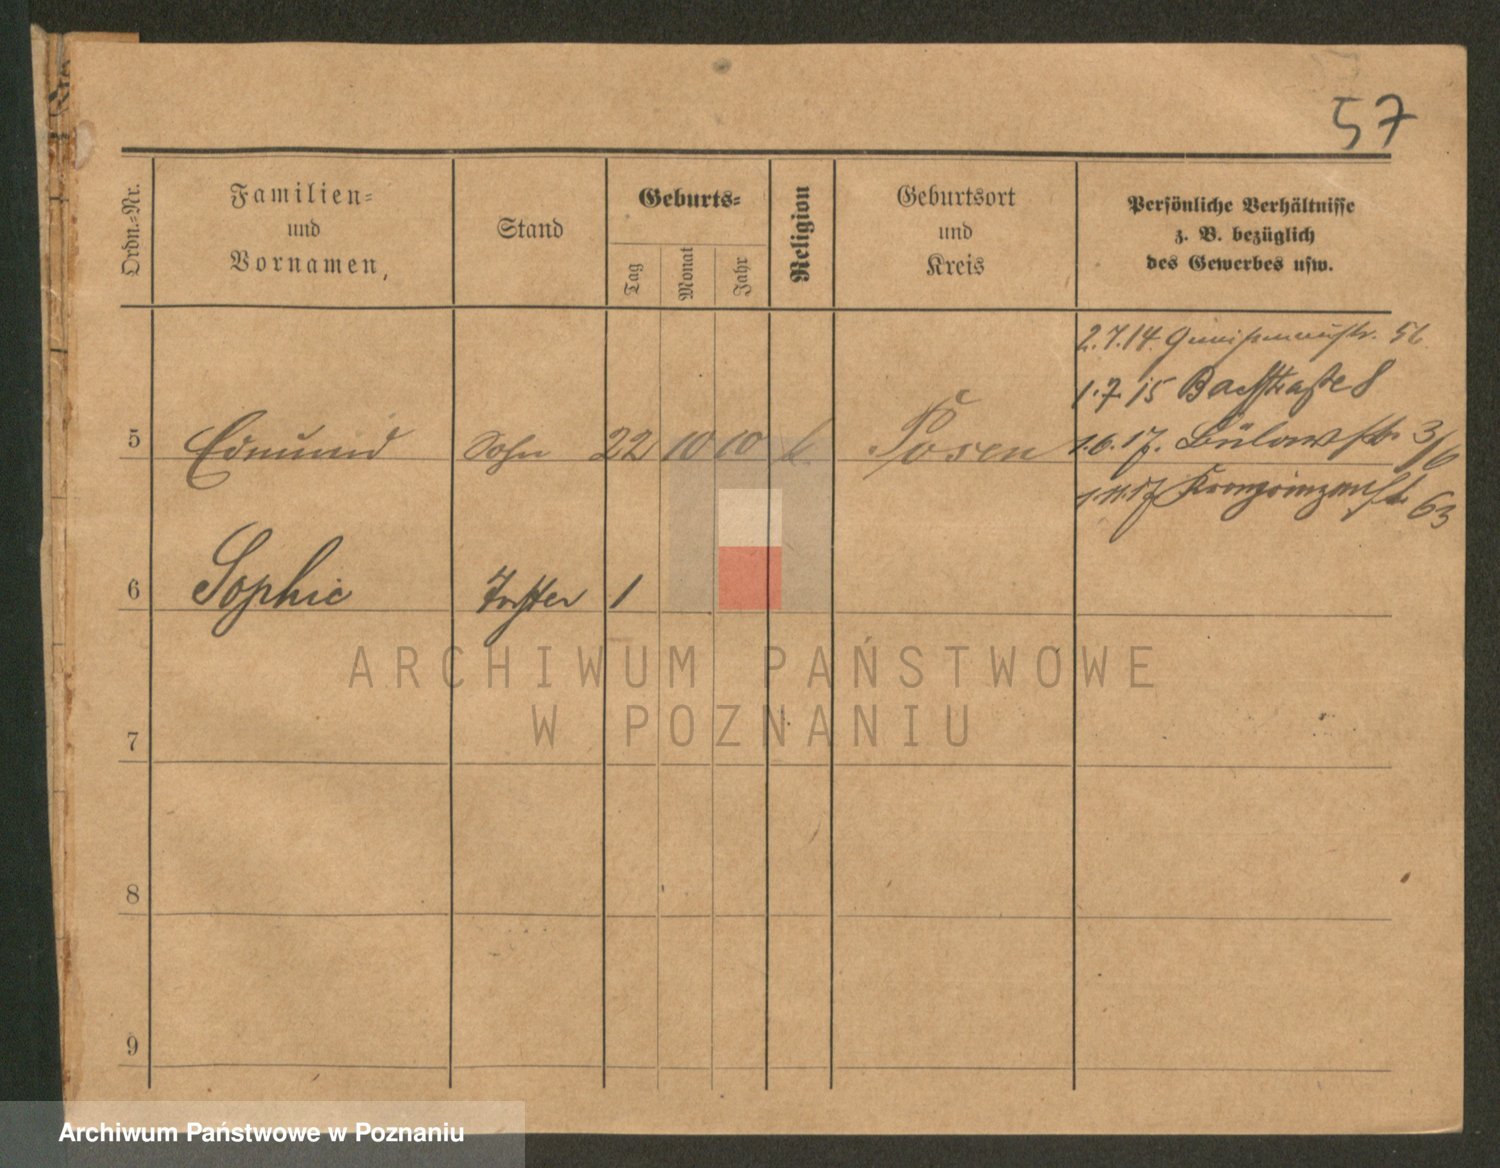 57
Ordn.=Nr.
Familien=
und
Vornamen,
Stand
Geburts=
Tag
Monat
Jahr
Religion
Geburtsort
und
Kreis
Persönliche Verhältnisse
z. B. bezüglich
des Gewerbes usw.
2.7.14. Gneisenaustr. 56
1.7.15 Bachstraße 8
5 Edmund Sohn 22 10 10 k Posen 1.6.17. Bülowstr. 3/6
1.11.17 Kronprinzenstr. 63
6 Sophie Tochter 1
7
8
9
ARCHIWUM PAŃSTWOWE
W POZNANIU
Archiwum Państwowe w Poznaniu